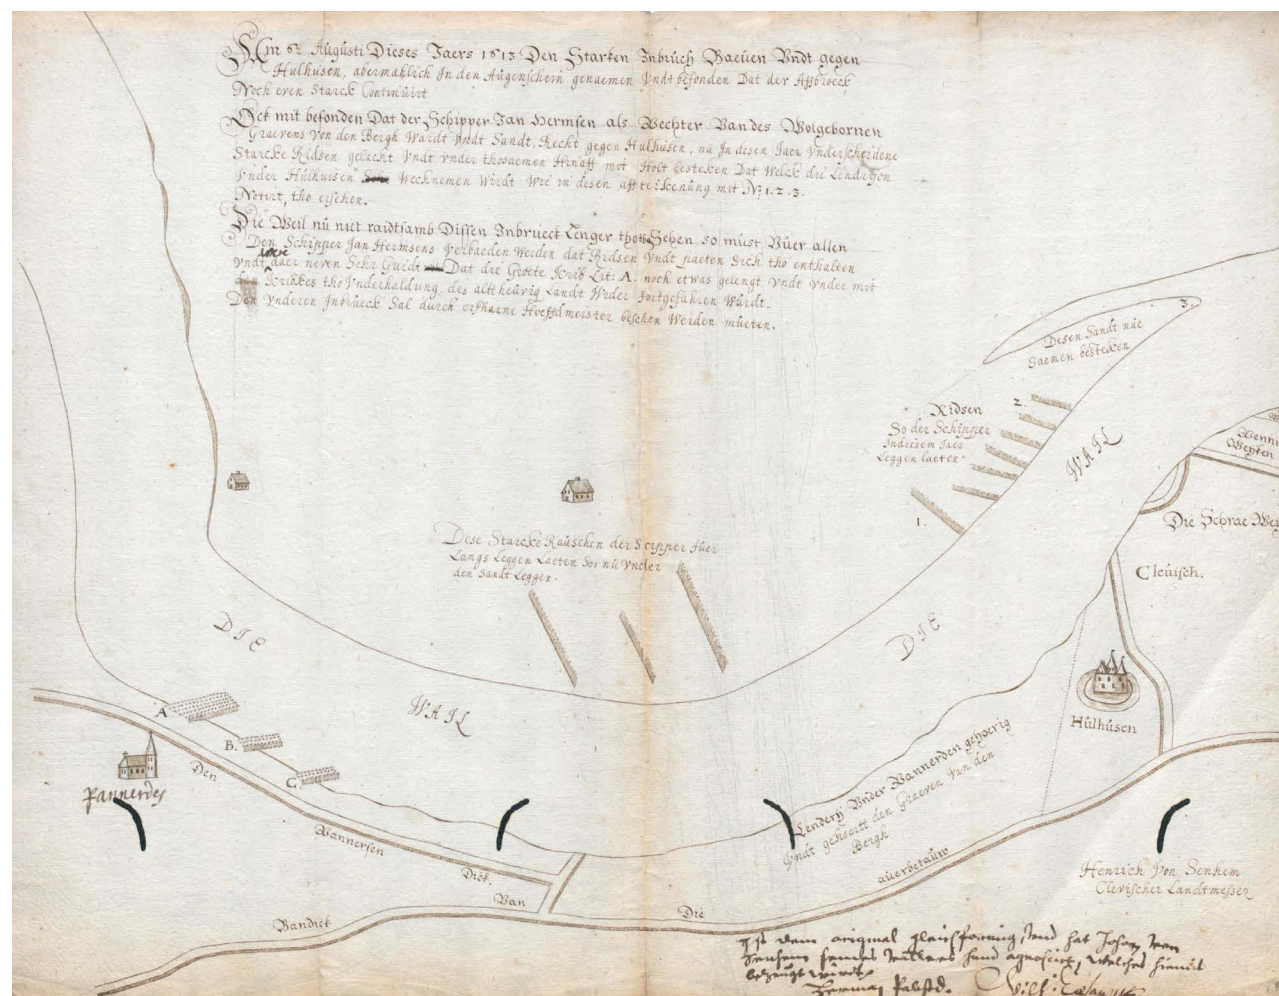 Am 6ᵗ Augusti Dieses Jaers 1613 Den Starken Inbruch Baeuen Vndt gegen
Hulhusen, abermahlich In den Augenschein genaemen Vndt befonden Dat der Affbroeck
Noch even Starck Continuirt
Ock mit befonden Dat der Schipper Jan Hermsen als Wechter Van des Wolgebornen
Graevens Von den Bergh Wardt Vndt Sandt, Recht gegen Hulhusen, nu In desen Jaer Vnderscheidene
Starcke Ridsen gelacht Vndt Vnder thosaemen Hinaff mit Holt besteken Dat Welck die Lendrijen
Vnder Hulhuisen Wechnemen Wirdt Wie in desen aff mit Nͦ 1. 2. 3.
Notirt, tho ersehen.
Die Weil nu niet raidtsamb Dissen Inbrueck Lenger tho Sehen so must Vuer allen
Den Schipper Jan Hermsens Verbaeden Werden dat Ridsen Vndt paeten Sich tho enthalten
Vndt daer neven Sehr Guidt Dat die Groete Krib Lit: A. noch etwas gelengt Vndt Vnder mit
Kribkes tho Vnderhaldung des Landt Wider fortgefahren Wurdt.
Den Vnderen Inbrueck Sal durch erfharne Hoefftmeister besehen Werden mueten.
3.
Desen Sandt nue
Saemen besteken
2.
Ridsen
So der Schipper
Indiesem Jaer
Leggen laeten.
1.
WAIL
Wenni
Weyken
Die Schrae
Cleuisch.
Dese Starcke Rauschen der Scipper fuer
Langs Leggen Laeten Soi nu Vnder
den Sandt Leggen.
DIE
DIE
WAIL
A
B.
C.
Hulhusen
Pannerdes
Den
Wannersen
Dick.
Lenderij Vnder Wannerden gehoerig
Vndt gehoertt den Graeven Van den
Bergh
Bandick
Van
Die
auerbetauw
Henrich Von Senhem
Clevischer Landtmesser
Ist dem original gleichformig, vnd hat Johan von
Senhem seines Vatters hand agnoscirt, welches hiemit
bezeugt wirdt
Herman
Wilh.